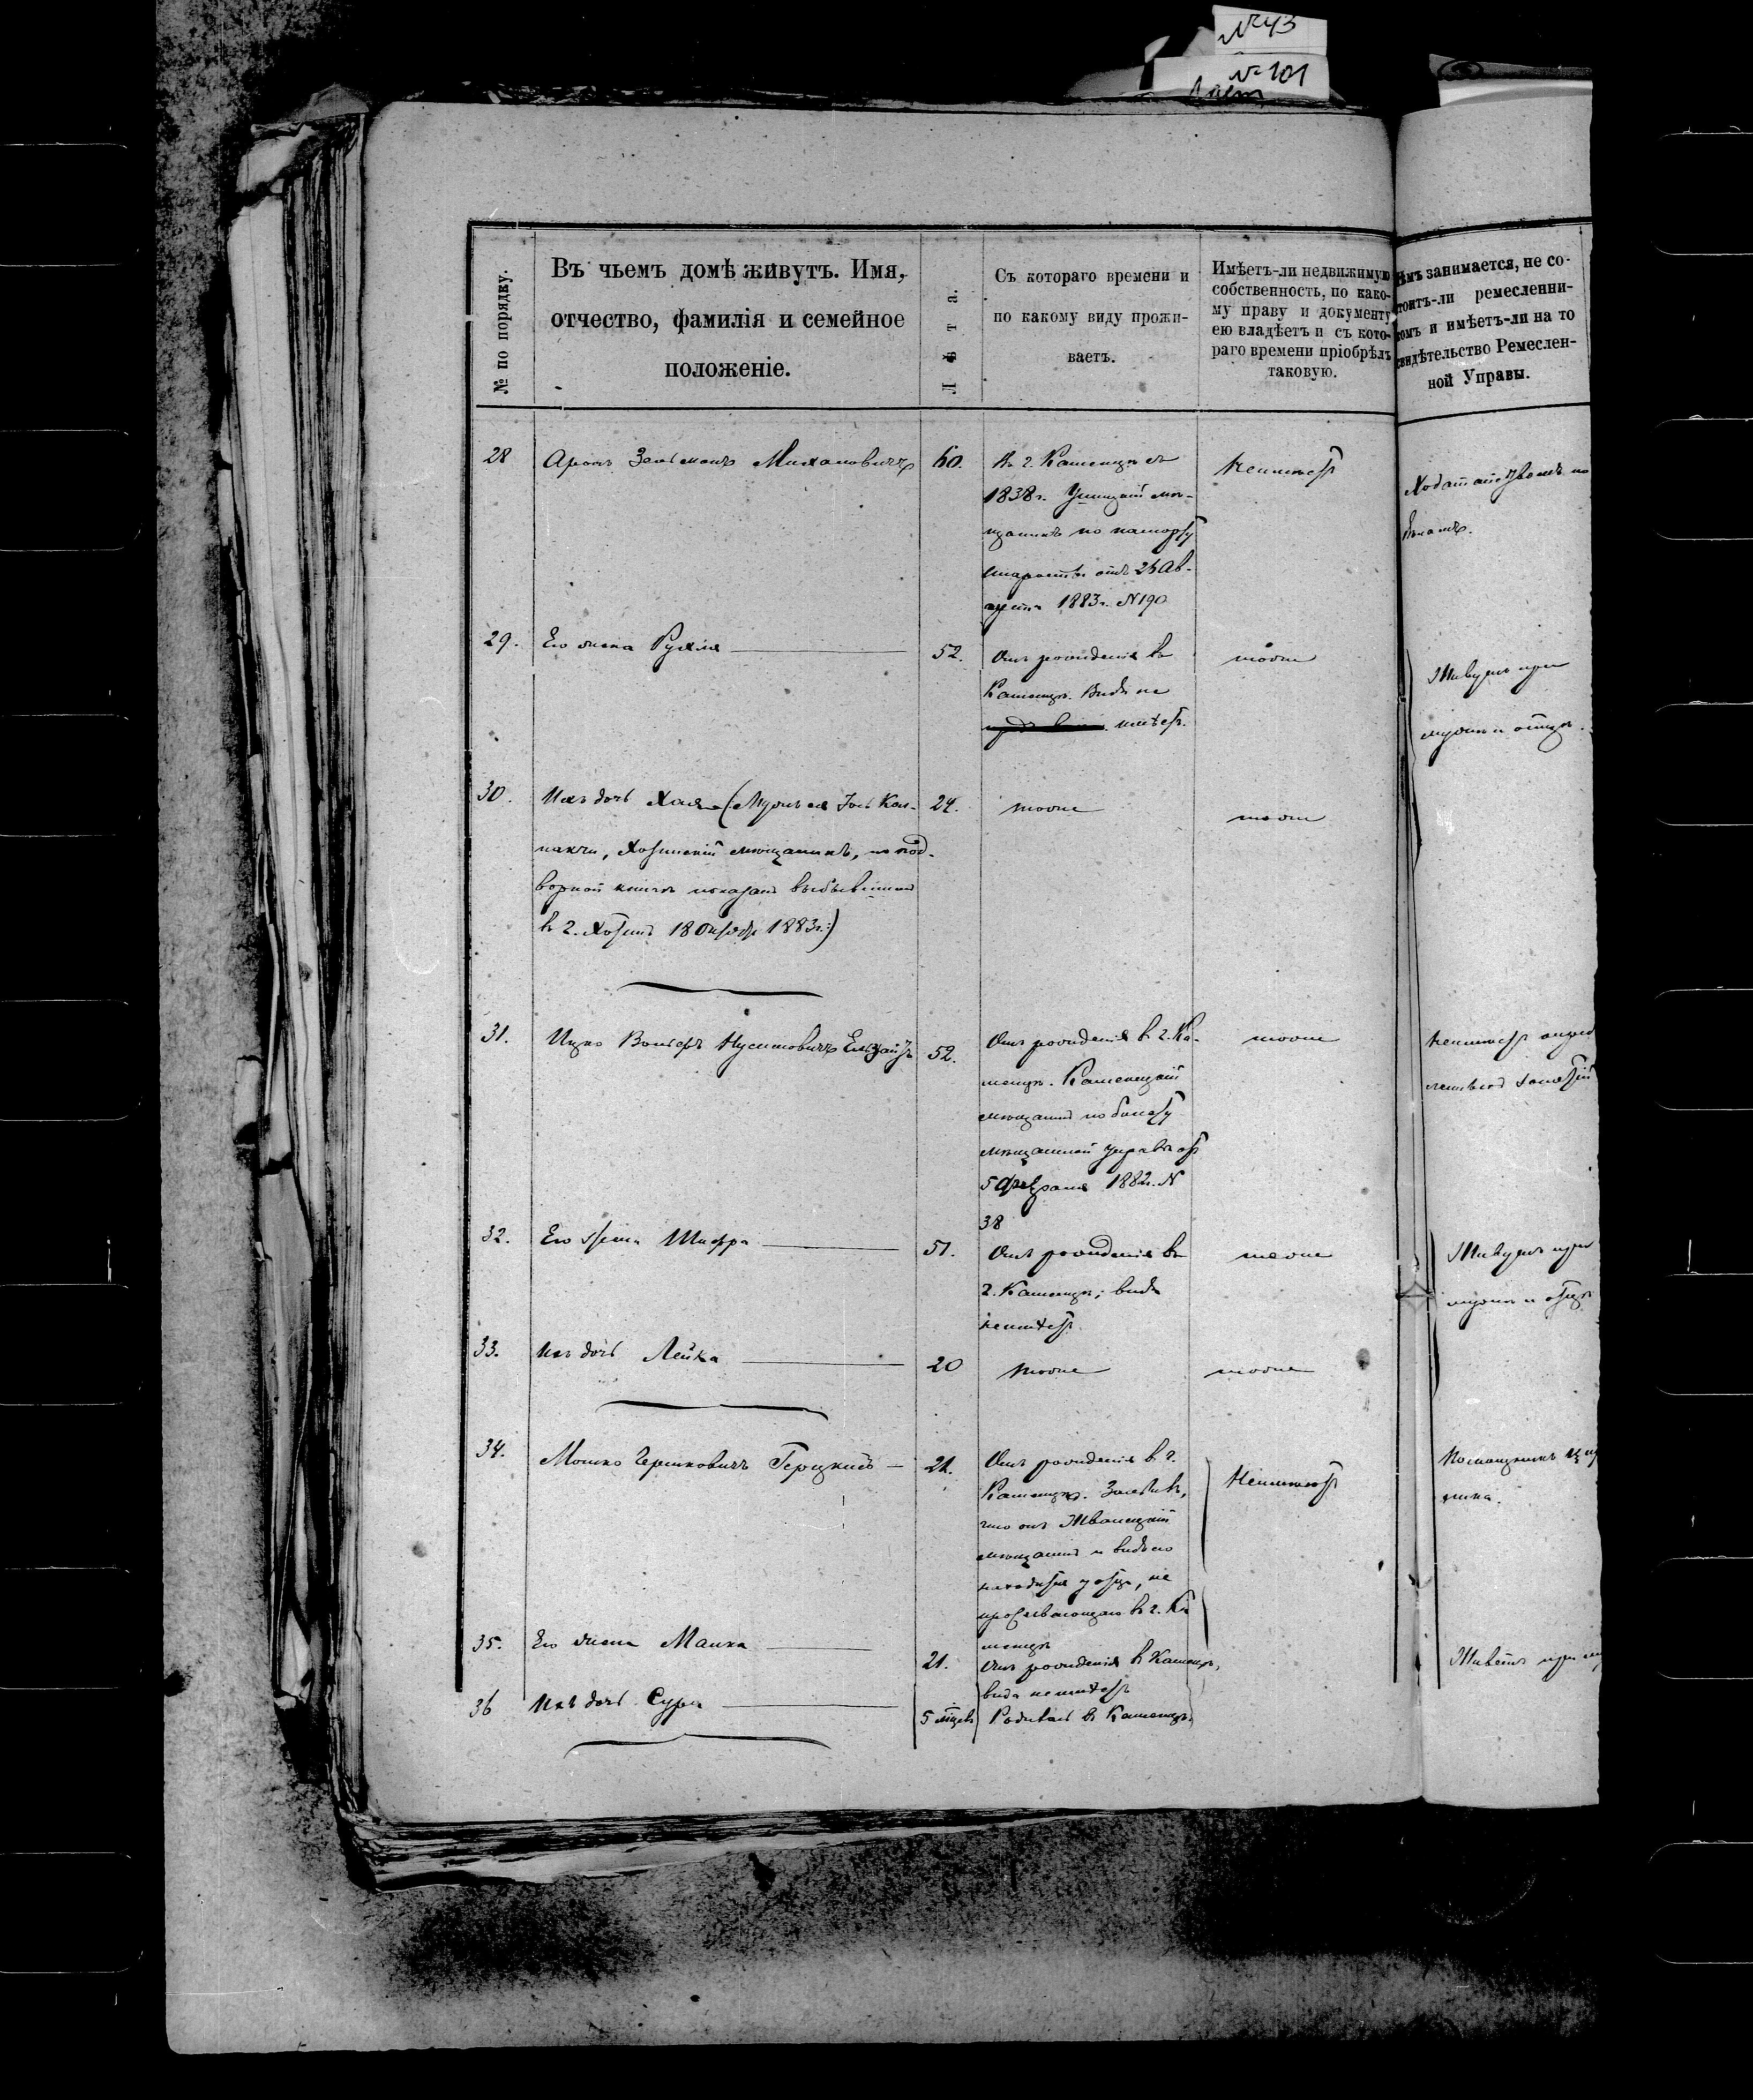 №43
№ 101
№ по порядку.
Въ чьемъ домѣ живутъ. Имя,
отчество, фамилія и семейное
положеніе.
Лѣта.
Съ котораго времени и
по какому виду прожи-
ваетъ.
Имѣетъ-ли недвижимую
собственность, по како-
му праву и документу
ею владѣетъ и съ кото-
раго времени пріобрѣлъ
таковую.
занимается, не со-
ремесленни-
и имѣетъ-ли на то
Ремеслен-
ной Управы.
28
Аронъ
60.
Въ г. Каменцѣ съ
1838 г. Ушицкій мѣ-
щанинъ по паспорту
старосты отъ 26 Ав-
густа 1883 г. №190
Неимѣетъ
29.
Его жена Рухля
52.
Отъ рожденія въ
Каменцѣ. Видъ не
имѣетъ.
тоже
Живутъ при
мужѣ и отцѣ.
30.
Ихъ дочь Хая (Мужъ ея
24.
тоже
тоже
Хотинскій мѣщанинъ, по под-
ворной книгѣ показанъ выбывшимъ
въ г. Хотинъ 18 Октября 1883 г.)
31.
Ицко
52.
Отъ рожденія въ г. Ка-
менцѣ. Каменецкій
мѣщанинъ по билету
мѣщанской управы отъ
5 Февраля 1882 г. №
38
тоже
Неимѣетъ опред
32.
Его жена Шифра
51.
Отъ рожденія въ
г. Каменцѣ; вида
неимѣетъ
тоже
Живутъ при
мужѣ и отцѣ
33.
Ихъ дочь Лейка
20
тоже
тоже
34.
Мошко Гершковичъ
21.
Отъ рожденія въ г.
Каменцѣ. Заявивъ,
что онъ Жванецкій
мѣщанинъ и видъ его
находится у отца, не
проживающаго въ г. Ка
менцѣ
Неимѣетъ
35.
Его жена Малка
21.
Отъ рожденія въ Каменцѣ,
вида неимѣетъ
Живетъ при
36
Ихъ дочь Сура
5 мѣсяц
Родилась въ Каменцѣ